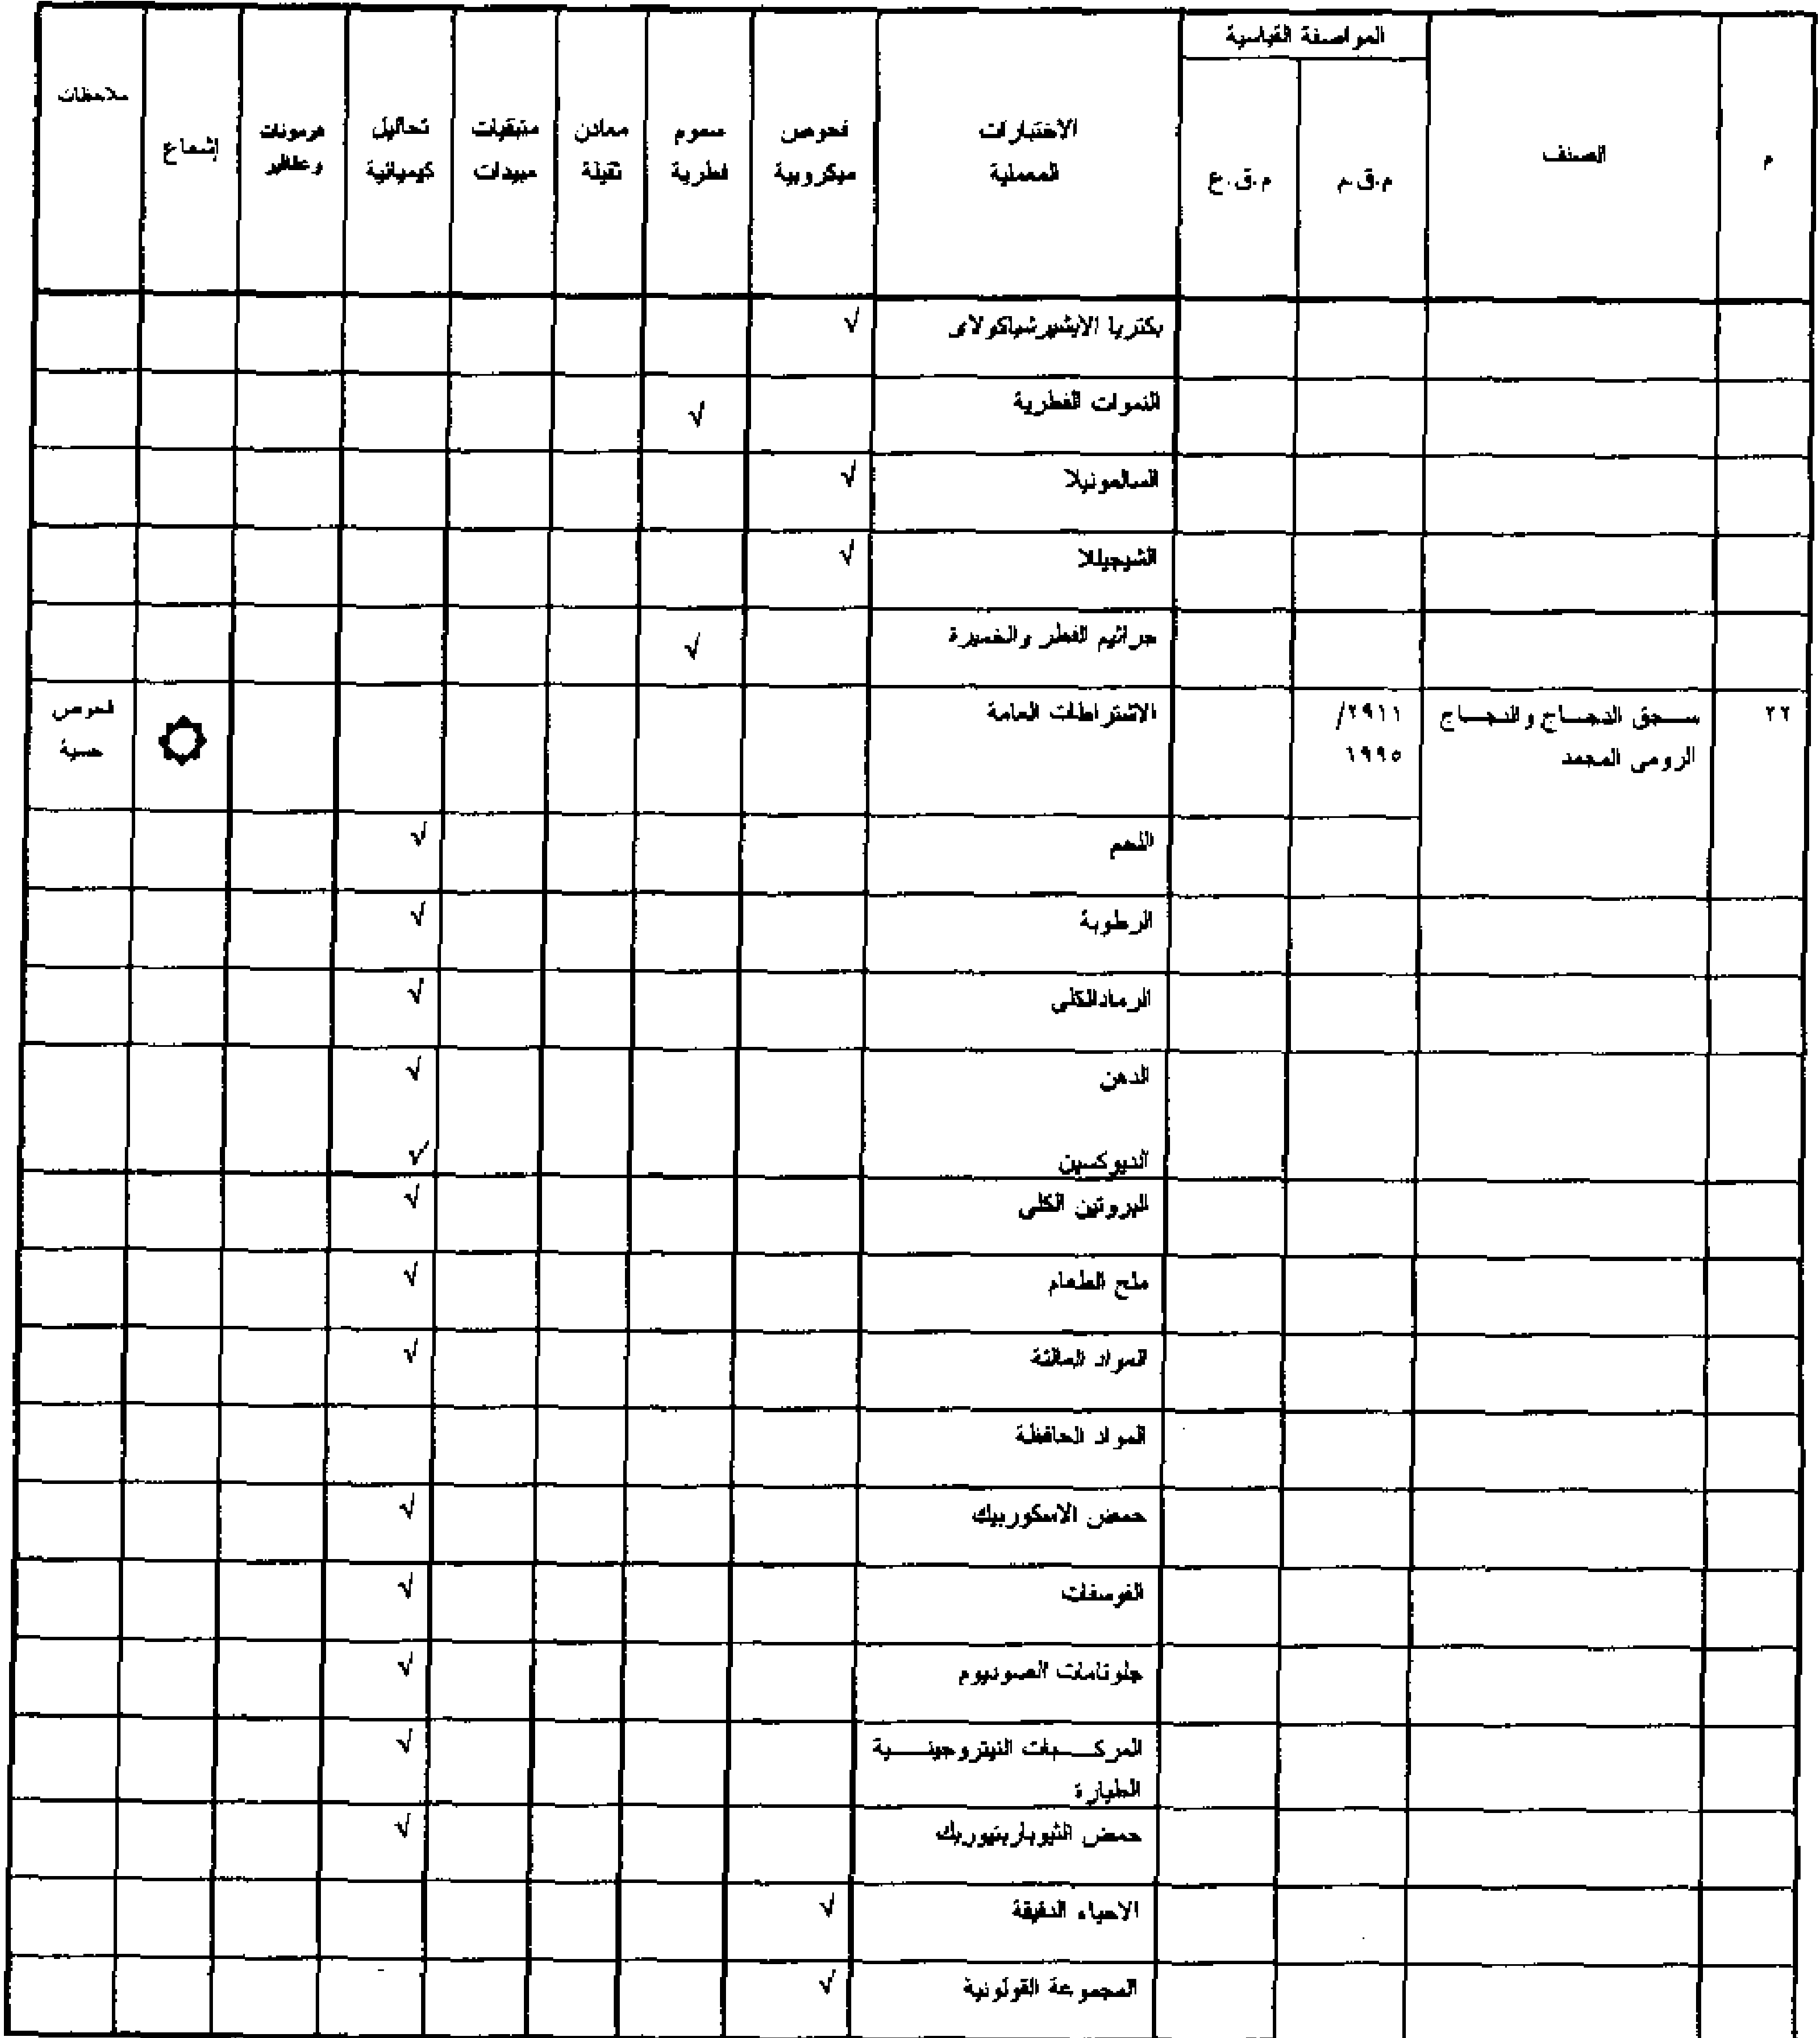 م
الصنف
المواصفة القياسية
م.ق.م
م.ق.ع
الاختبارات
المعملية
فحوص
ميكروبية
سموم
فطرية
معادن
ثقيلة
متبقيات
مبيدات
تحاليل
كيميائية
هرمونات
وعقاقير
إشعاع
ملاحظات
بكتريا الايشيرشياكولاى √
النموات الفطرية √
السالمونيلا √
الشيجيللا √
جراثيم الفطر والخميرة √
٢٢
ســـجق الدجـــاج والدجـــاج
الرومى المجمد
٢٩١١/
١٩٩٥
الاشتراطات العامة
فحوص
حسية
اللحم √
الرطوبة √
الرمادالكلى √
الدهن √
الديوكسين √
البروتين الكلى √
ملح الطعام √
المواد المالئة √
المواد الحافظة
حمض الاسكوربيك √
الفوسفات √
جلوتامات الصوديوم √
المركـــــبات النيتروجينـــــية √
الطيارة
حمض الثيوباربتيوريك √
الاحياء الدقيقة √
المجموعة القولونية √